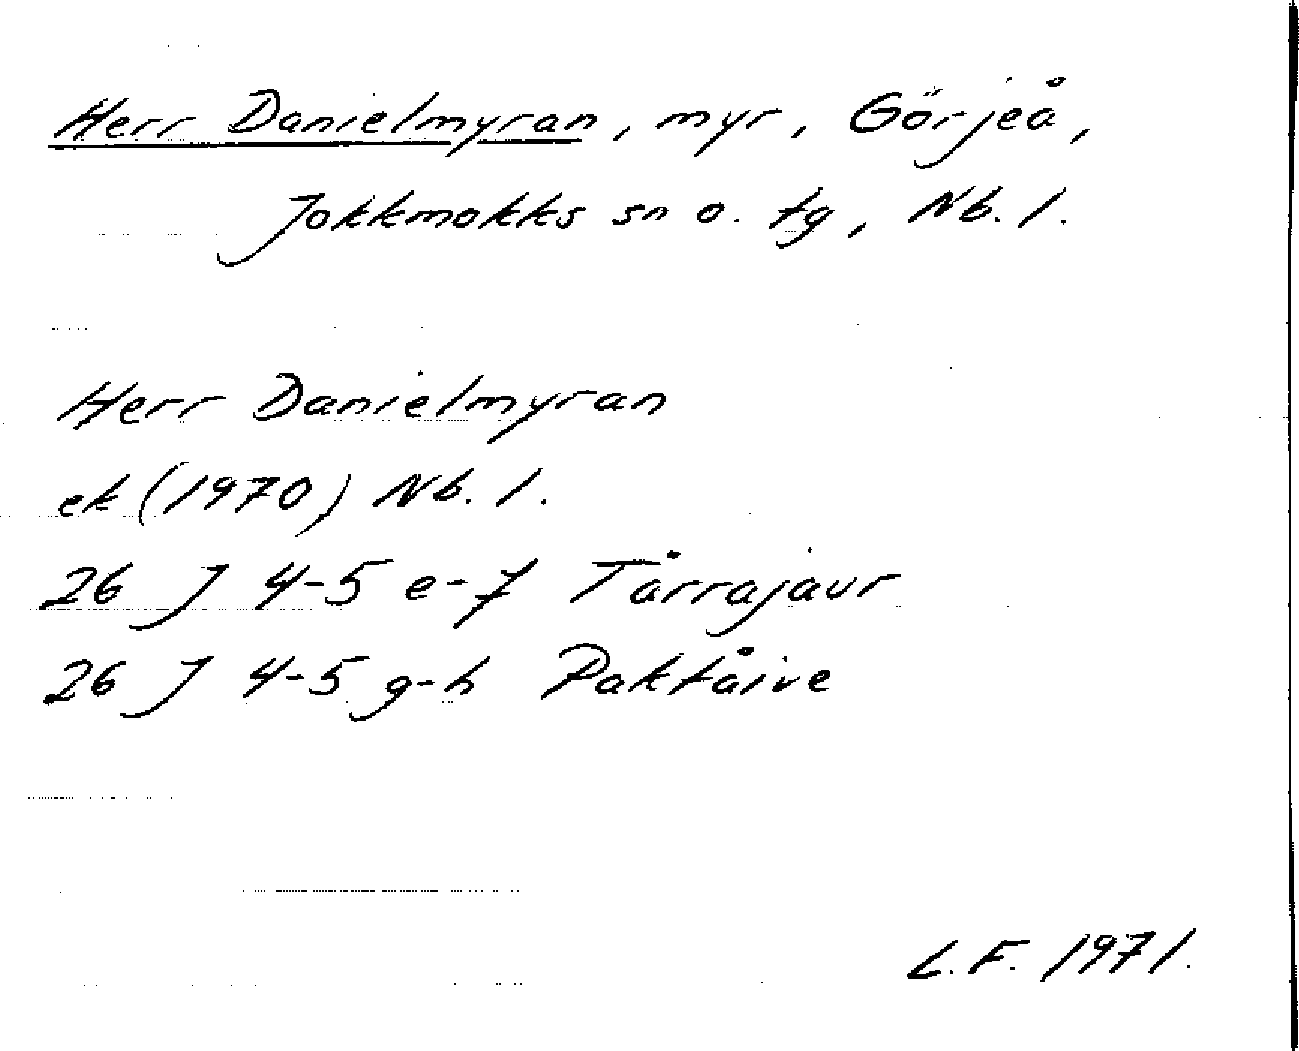 Herr Danielmyran, myr, Görjeå,
Jokkmokks sn o. tg, Nb. l.
Herr Danielmyran
ek (1970) Nb. l.
26 J 4-5 e-f Tårrajaur
26 J 4-5 g-h Paktåive
L.F. 1971.